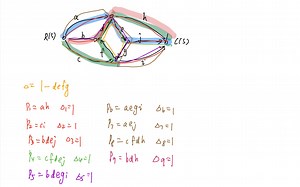 a
h
R(S)
b
j
C(S)
c
f
g
i
Δ = 1 - defg
P₁ = ah Δ₁ = 1
P₂ = ci Δ₂ = 1
P₃ = bdej Δ₃ = 1
P₄ = cfdej Δ₄ = 1
P₅ = bdegi Δ₅ = 1
P₆ = aegi Δ₆ = 1
P₇ = aej Δ₇ = 1
P₈ = cfdh Δ₈ = 1
P₉ = bdh Δ₉ = 1